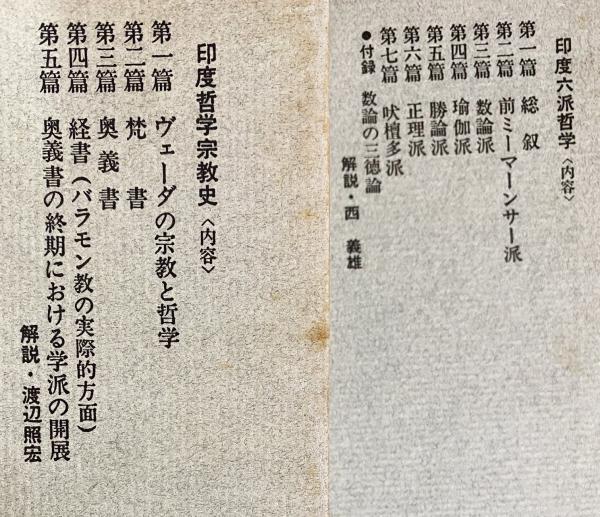 印度六派哲学〈内容〉
第一篇 総叙
第二篇 前ミーマーンサー派
第三篇 数論派
第四篇 瑜伽派
第五篇 勝論派
第六篇 正理派
第七篇 吠檀多派
●付録 数論の三徳論
解説・西 義雄
印度哲学宗教史〈内容〉
第一篇 ヴェーダの宗教と哲学
第二篇 梵書
第三篇 奥義書
第四篇 経書(バラモン教の実際的方面)
第五篇 奥義書の終期における学派の開展
解説・渡辺照宏